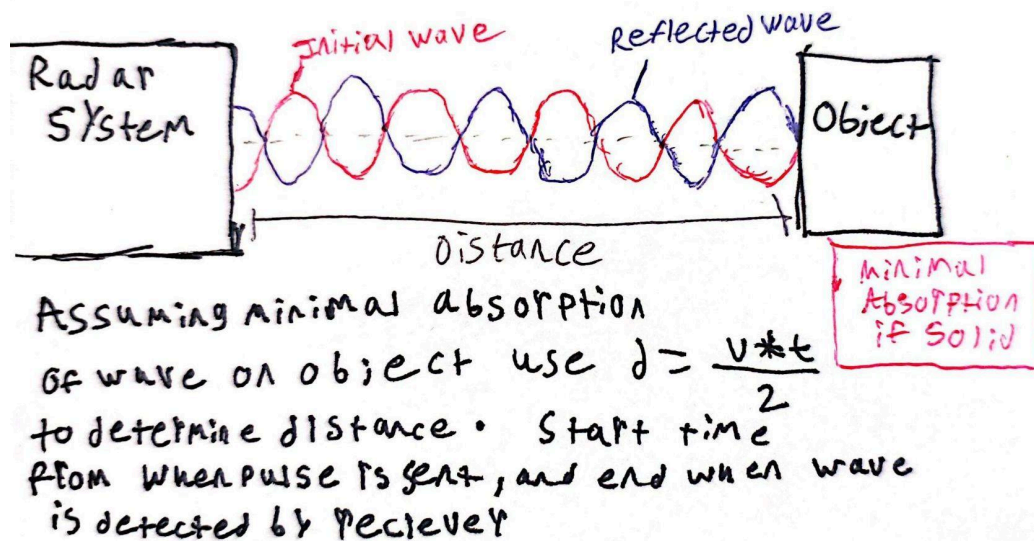 Initial wave
Reflected wave
Radar
System
Object
Distance
minimal
Absorption
if Solid
Assuming minimal absorption
of wave on object use d = v*t/2
to determine distance. Start time
from when pulse is sent, and end when wave
is detected by reciever